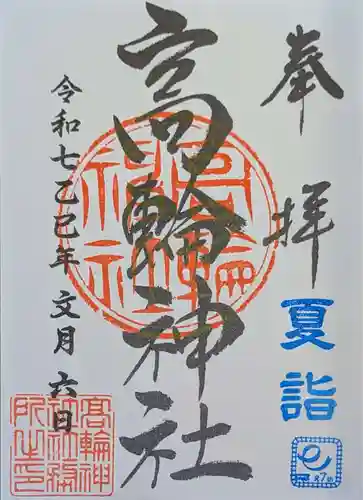 奉拝
夏詣
高輪神社
高輪神社
令和七乙巳年文月六日
高輪神社社務所之印